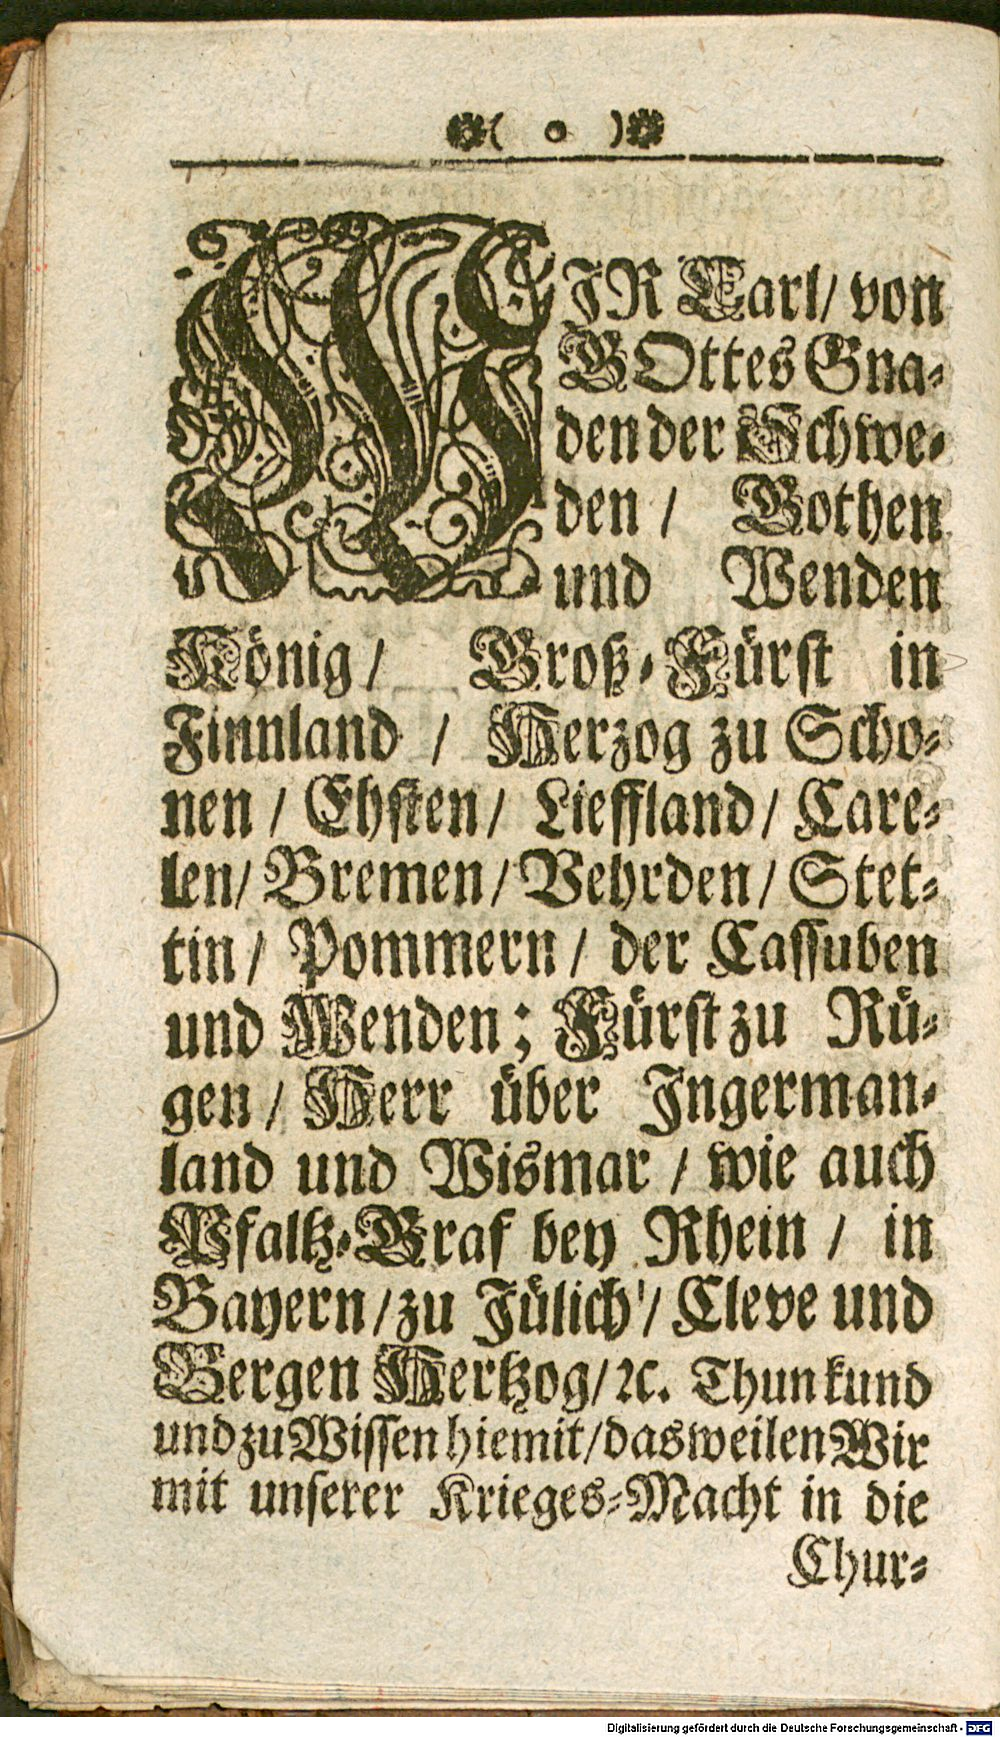 ( o )
WIR Carl/ von
GOttes Gna-
den der Schwe-
den / Gothen
und Wenden
König / Groß-Fürst in
Finnland / Herzog zu Scho-
nen / Ehsten / Lieffland / Care-
len / Bremen / Vehrden / Stet-
tin / Pommern / der Cassuben
und Wenden; Fürst zu Rü-
gen / Herr über Ingerman-
land und Wismar / wie auch
Pfaltz-Graf bey Rhein / in
Bayern / zu Jülich / Cleve und
Bergen Hertzog / ꝛc. Thun kund
und zu Wissen hiemit / das weilen Wir
mit unserer Krieges-Macht in die
Chur-
Digitalisierung gefördert durch die Deutsche Forschungsgemeinschaft - DFG